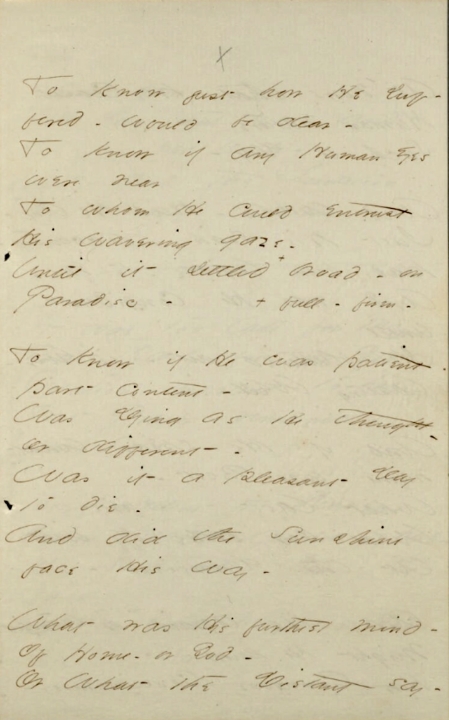 x
To know just how He suf-
fered - would be dear -
To know if any Human Eyes
were near
To whom He could entrust
His wavering gaze -
Until it settled + broad - on
Paradise - + full - firm -
To know if He was patient -
part content -
Was Dying as He thought -
or different -
Was it a pleasant Day
to die -
And did the Sunshine
face His way -
What was His furthest mind -
Of Home - or God -
Or What the Distant say -